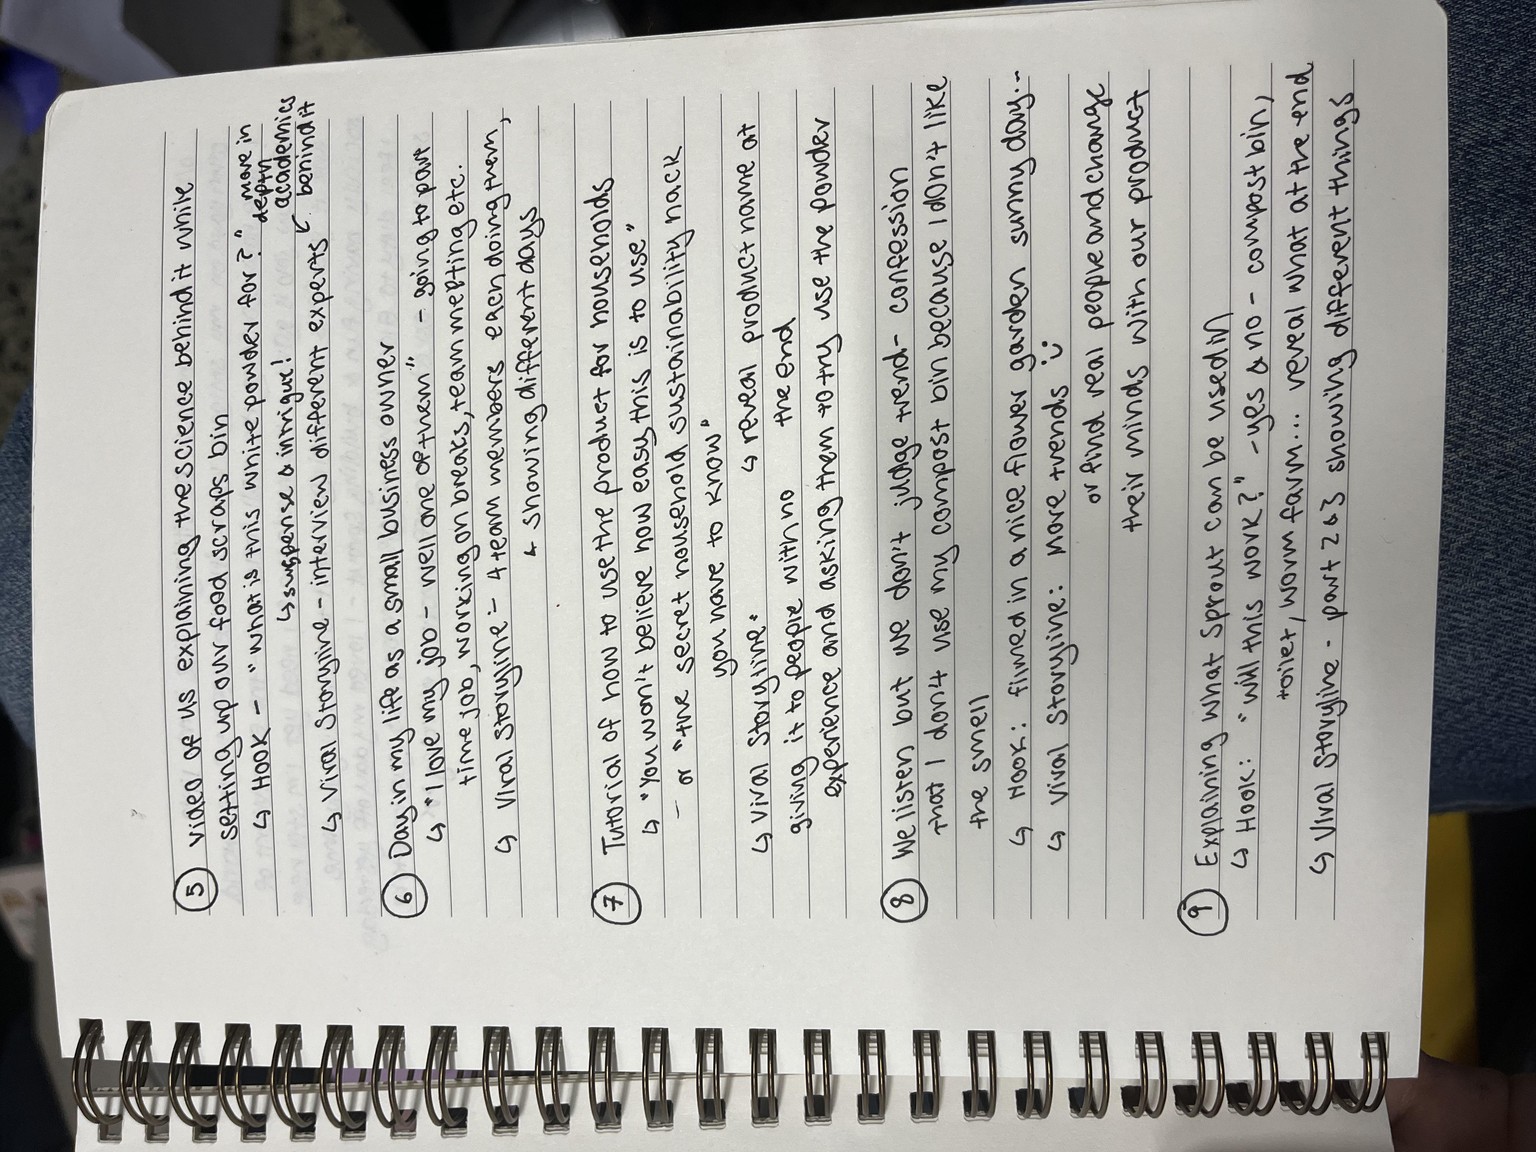 5 video of us explaining the science behind it while
setting up our food scraps bin
↳ Hook - "what is this white powder for?"
↳ suspense & intrigue!
↳ Viral Storyline - interview different experts
↙ more in
depth
academics
behind it
6 Day in my life as a small business owner
↳ "I love my job - well one of them" - going to part
time job, working on breaks, team meeting etc.
↳ Viral Storyline :- 4 team members each doing them,
↳ showing different days
7 Tutorial of how to use the product for households
↳ "You won't believe how easy this is to use"
- or "the secret household sustainability hack
you have to know"
↳ reveal product name at
the end
↳ Viral Storyline:
giving it to people with no
experience and asking them to try use the powder
8 We listen but we don't judge trend - confession
that I don't use my compost bin because I don't like
the smell
↳ Hook: filmed in a nice flower garden sunny day...
↳ Viral Storyline: More trends :)
or find real people and change
their minds with our product
9 Explaining what Sprout can be used in
↳ Hook: "will this work?" - yes & no - compost bin,
toilet, worm farm... reveal what at the end
↳ Viral Storyline - part 2 & 3 showing different things